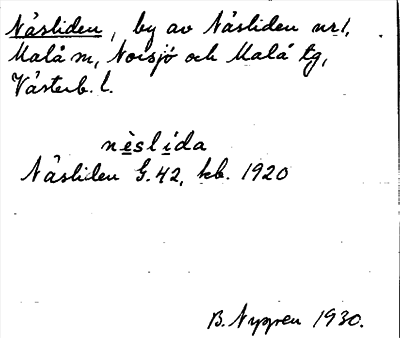 Näsliden, by av Näsliden nr 1,
Malå sn, Norsjö och Malå tg,
Västerb. l.
nèslída
Näsliden G. 42, kb. 1920
B. Nygren 1930.